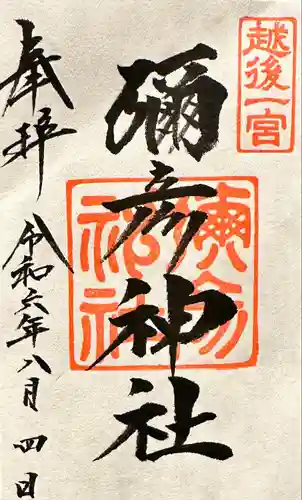 越後一宮
彌彦神社
奉拝
令和六年八月四日